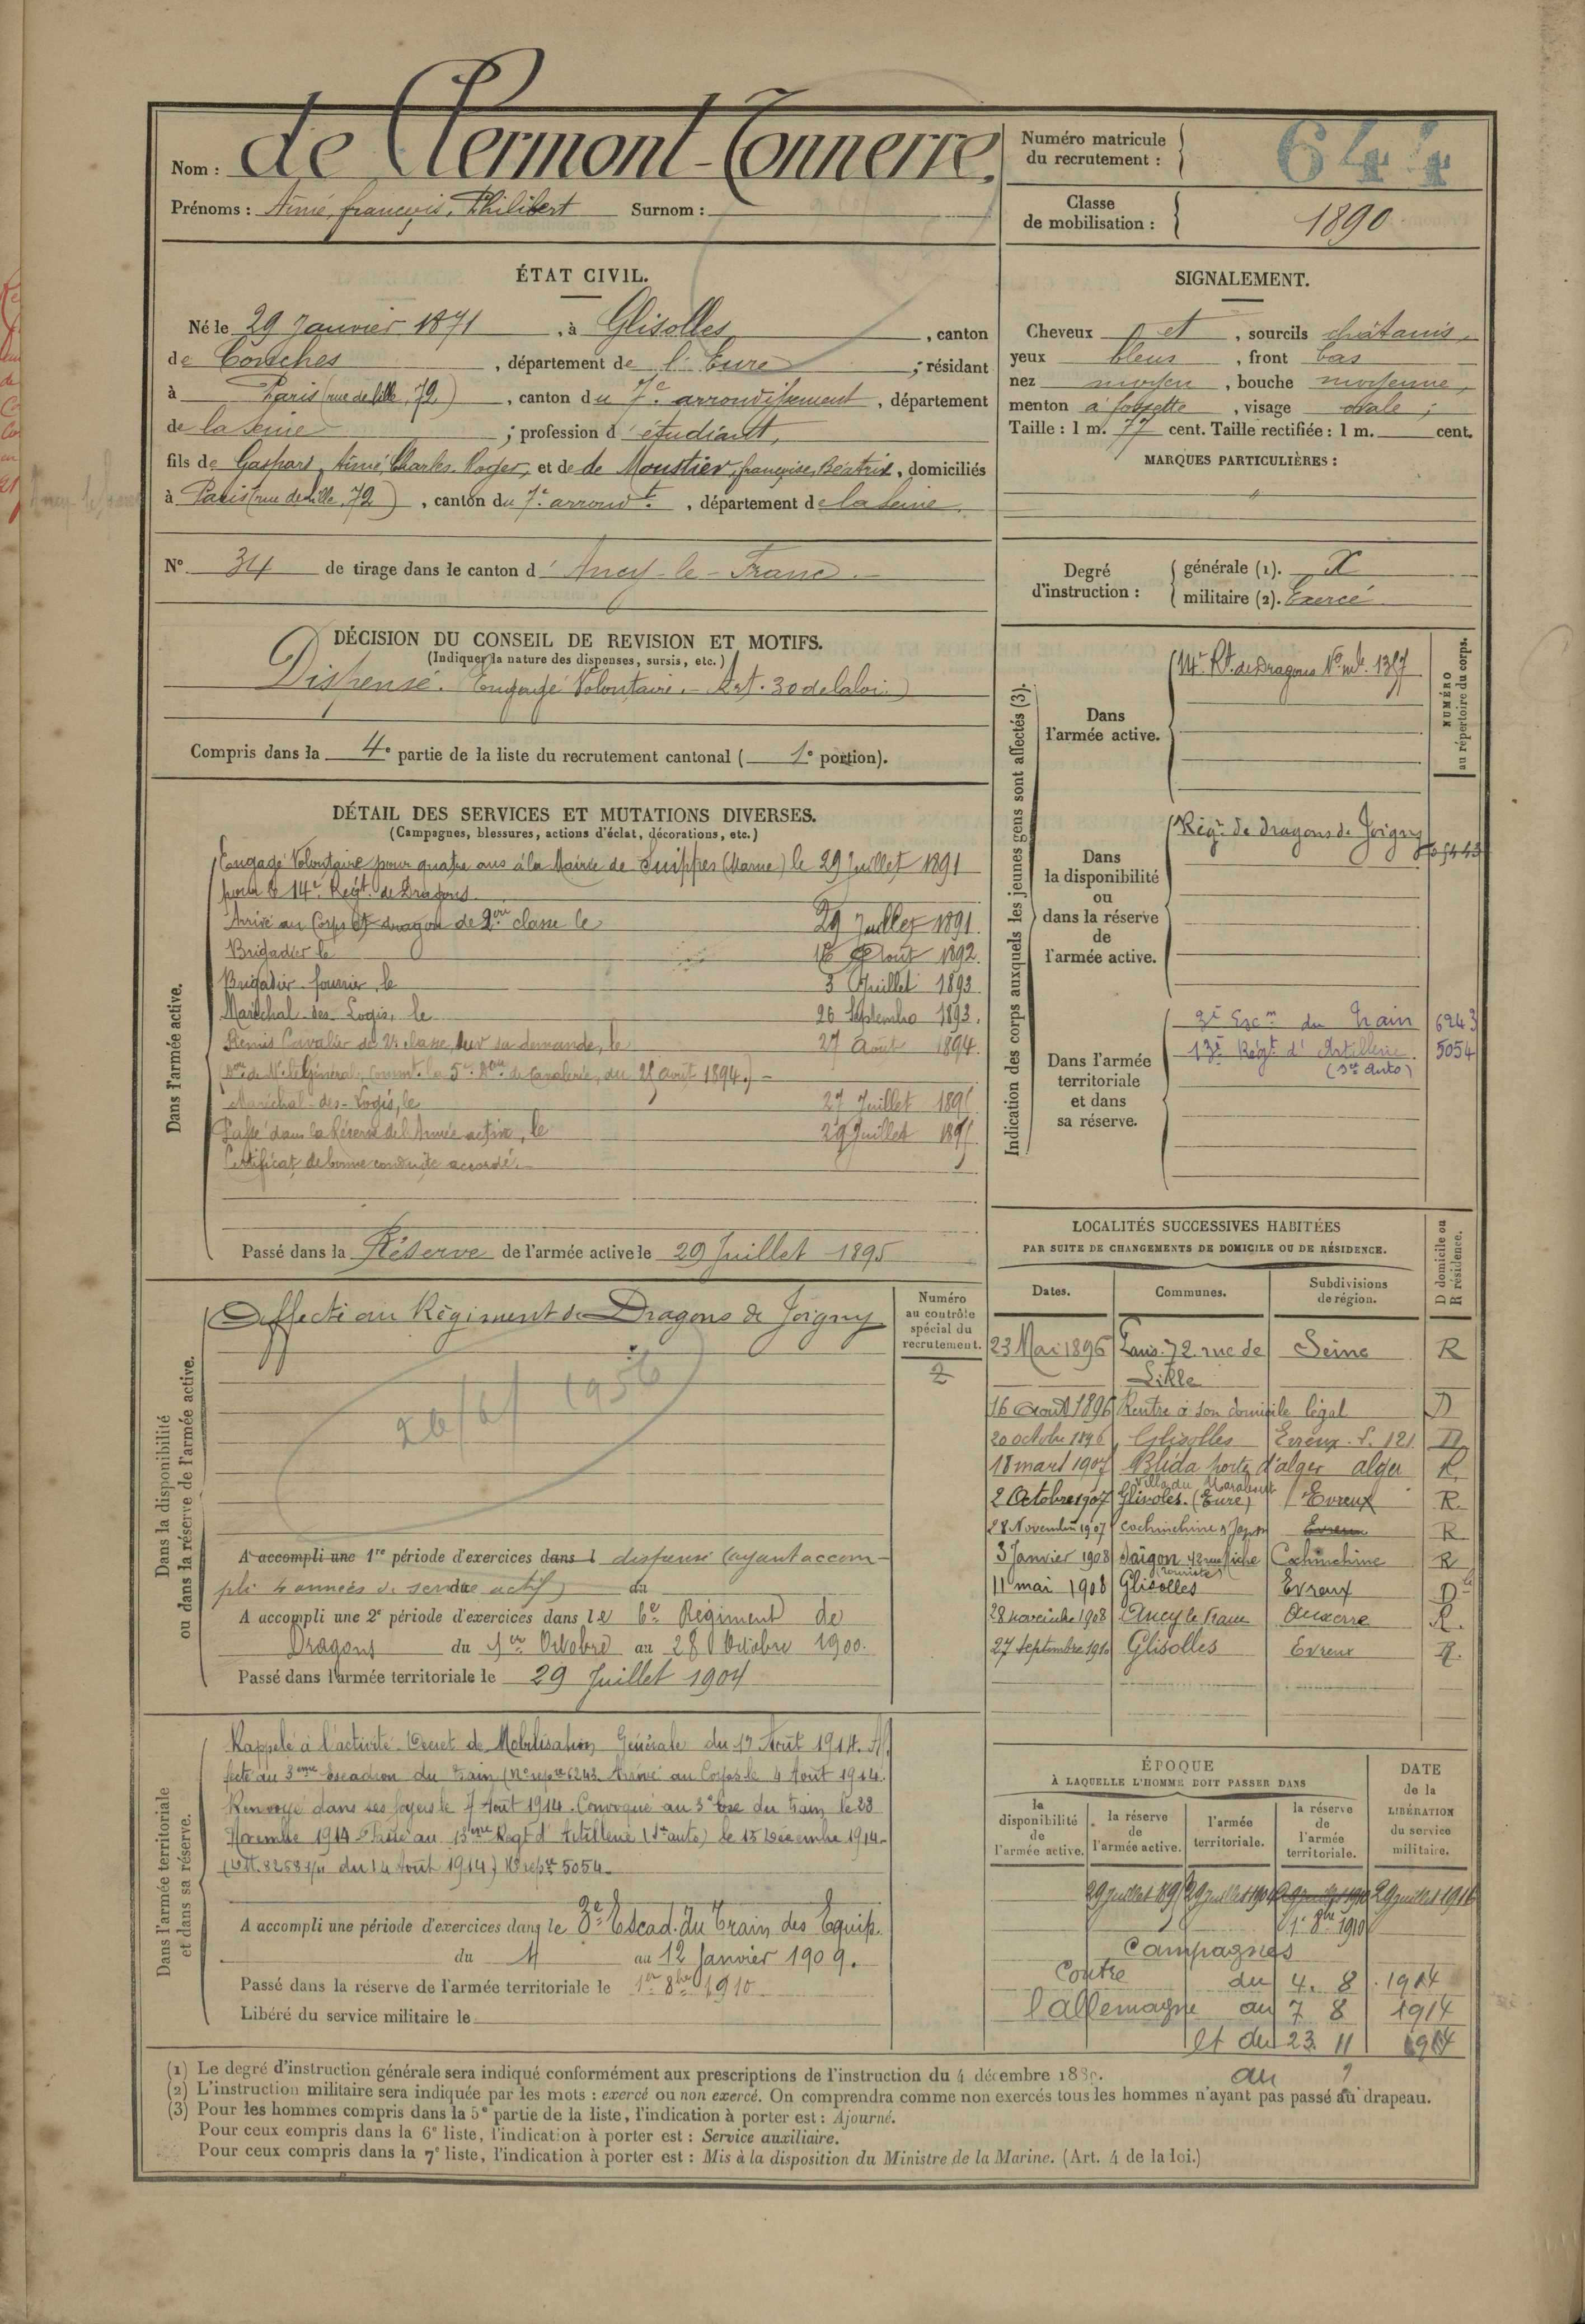 Nom : de Clermont-Tonnerre.
Prénoms : Aimé, françois, Philibert Surnom :
Numéro matricule du recrutement : 644
Classe de mobilisation : 1890
ÉTAT CIVIL.
Né le 29 Janvier 1871, à Glisolles, canton
de Conches, département de l'Eure ; résidant
à Paris (rue de lille, 72), canton du 7e arrondissement, département
de la Seine ; profession d'étudiant,
fils de Gaspard, Aimé, Charles, Roger, et de de Moustier, françoise, Béatrix, domiciliés
à Paris (rue de Lille, 72), canton du 7e arrondt, département de la Seine.
N° 34 de tirage dans le canton d'Ancy-le-Franc.
SIGNALEMENT.
Cheveux et, sourcils châtains,
yeux bleus, front bas
nez moyen, bouche moyenne,
menton à fossette, visage ovale ;
Taille : 1 m. 77 cent. Taille rectifiée : 1 m. cent.
MARQUES PARTICULIÈRES :
"
Degré d'instruction :
générale (1). X
militaire (2). Exercé
DÉCISION DU CONSEIL DE REVISION ET MOTIFS.
(Indiquer la nature des dispenses, sursis, etc.)
Dispensé. Engagé Volontaire. - Art. 30 de la loi.
Compris dans la 4e partie de la liste du recrutement cantonal (1e portion).
DÉTAIL DES SERVICES ET MUTATIONS DIVERSES.
(Campagnes, blessures, actions d'éclat, décorations, etc.)
Dans l'armée active.
Engagé Volontaire pour quatre ans à la Mairie de Suippes (Marne) le 29 Juillet 1891
pour le 14e Regt de Dragons
Arrivé au Corps et dragon de 2e classe le 29 Juillet 1891.
Brigadier le Août 1892.
Brigadier fourrier, le 3 Juillet 1893.
Maréchal des Logis, le 26 Septembre 1893.
Remis Cavalier de 2e classe, sur sa demande, le 27 Août 1894.
de Mr le Général, Commt la 5e Don de Cavalerie, du 25 août 1894. -
Maréchal-des-Logis, le 27 Juillet 1895
Passé dans la Réserve de l'Armée active, le 29 Juillet 1895
Certificat de bonne conduite accordé.
Passé dans la Réserve de l'armée active le 29 Juillet 1895
Indication des corps auxquels les jeunes gens sont affectés (3).
NUMÉRO au répertoire du corps.
Dans l'armée active.
14e Rt de Dragons No mle 1357
Dans la disponibilité ou dans la réserve de l'armée active.
Régt de dragons de Joigny
Dans l'armée territoriale et dans sa réserve.
3e Escn du Train 6243
13e Régt d'Artillerie 5054
(Son auto)
Dans la disponibilité ou dans la réserve de l'armée active.
Affecté au Régiment de Dragons de Joigny
Numéro au contrôle spécial du recrutement.
2
26/6/1956
A accompli une 1re période d'exercices dans l dispensé (ayant accom-
pli 4 années de service actif) du
A accompli une 2e période d'exercices dans le 6e Régiment de
Dragons du 1er Octobre au 28 Octobre 1900.
Passé dans l'armée territoriale le 29 Juillet 1904
LOCALITÉS SUCCESSIVES HABITÉES
PAR SUITE DE CHANGEMENTS DE DOMICILE OU DE RÉSIDENCE.
Dates. Communes. Subdivisions de région. D domicile ou R résidence.
23 Mai 1896 Paris. 72 rue de Lille Seine R
16 Août 1896 Rentre à son domicile légal D
20 octobre 1896 Glisolles Evreux D
18 mars 1907 Blida porte d'alger alger R
villa du Marabout
2 Octobre 1907 Glisolles. (Eure) Evreux R.
28 Novembre 1907 Cochinchine & Japon R
3 Janvier 1908 Saïgon Cochinchine R
11 mai 1908 Glisolles Evreux D
28 novembre 1908 Ancy le Franc Auxerre R.
27 Septembre 1910 Glisolles Evreux R.
Dans l'armée territoriale et dans sa réserve.
Rappelé à l'activité. Décret de Mobilisation Générale du 1er Août 1914. Af-
fecté au 3eme Escadron du train (No repre 6243. Arrivé au Corps le 4 Août 1914.
Renvoyé dans ses foyers le 7 Août 1914. Convoqué au 3e Esc du train le 23
Novembre 1914. Passé au 13eme Regt d'Artillerie (Son auto) le 15 Décembre 1914.
du 14 Août 1914) No repre 5054.
A accompli une période d'exercices dans le 3e Escad. du Train des Equip.
du 4 au 12 Janvier 1909.
Passé dans la réserve de l'armée territoriale le 1er 8bre 1910
Libéré du service militaire le
ÉPOQUE
À LAQUELLE L'HOMME DOIT PASSER DANS
la disponibilité de l'armée active. la réserve de l'armée active. l'armée territoriale. la réserve de l'armée territoriale.
DATE de la LIBÉRATION du service militaire.
29 juillet 1895 29 juillet 1904 29 juillet 1916
1er 8bre 1910
Campagnes
Contre du 4. 8. 1914
l'allemagne au 7 8 1914
et du 23. 11 1914
au ?
(1) Le degré d'instruction générale sera indiqué conformément aux prescriptions de l'instruction du 4 décembre 1889.
(2) L'instruction militaire sera indiquée par les mots : exercé ou non exercé. On comprendra comme non exercés tous les hommes n'ayant pas passé au drapeau.
(3) Pour les hommes compris dans la 5e partie de la liste, l'indication à porter est : Ajourné.
Pour ceux compris dans la 6e liste, l'indication à porter est : Service auxiliaire.
Pour ceux compris dans la 7e liste, l'indication à porter est : Mis à la disposition du Ministre de la Marine. (Art. 4 de la loi.)